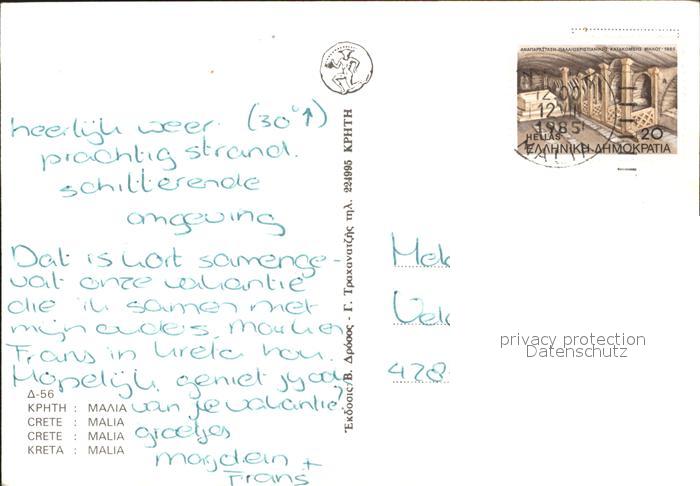 heerlijk weer. (30° ↑)
prachtig strand.
schitterende
omgeving
Dat is kort samenge-
vat onze vakantie
die ik samen met
mijn ouders,
Frans in Kreta hou.
Hopelijk geniet jij ook
van je vakantie,
groetjes
+
Frans
Δ-56
ΚΡΗΤΗ : ΜΑΛΙΑ
CRETE : MALIA
CRETE : MALIA
KRETA : MALIA
Ἐκδοσις Β. Δρόσος - Γ. Τραχανατζής τηλ. 224995 ΚΡΗΤΗ
ΑΝΑΠΑΡΑΣΤΑΣΗ ΠΑΛΑΙΟΧΡΙΣΤΙΑΝΙΚΗΣ ΚΑΤΑΚΟΜΒΗΣ ΜΗΛΟΥ · 1985
1985
HELLAS 20
ΕΛΛΗΝΙΚΗ ΔΗΜΟΚΡΑΤΙΑ
privacy protection
Datenschutz